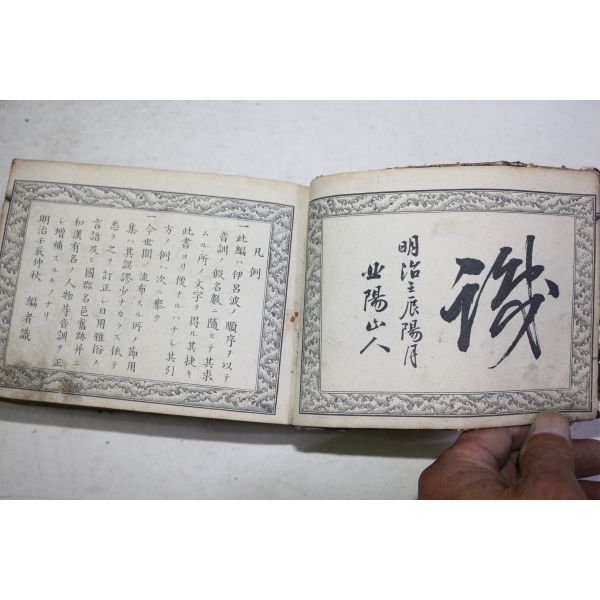 識
明治壬辰陽月
山人
凡例
一此編ハ伊呂波ノ順序ヲ以テ
音訓ノ假名數ニ隨ヒテ其求
ムル所ノ文字ヲ得ル其捷キ
此書ヨリ便ナルハナシ其引
方ノ例ハ次ニ擧ク
一今世間ニ流布スル所ノ節用
集ハ其誤謬少ナカラス依テ
悉ク之ヲ訂正シ日用雅俗ノ
言語及ヒ國郡名邑舊跡幷ニ
和漢有名ノ人物等音訓ヲ正
シ增補スルモノナリ
明治壬辰仲秋 編者識